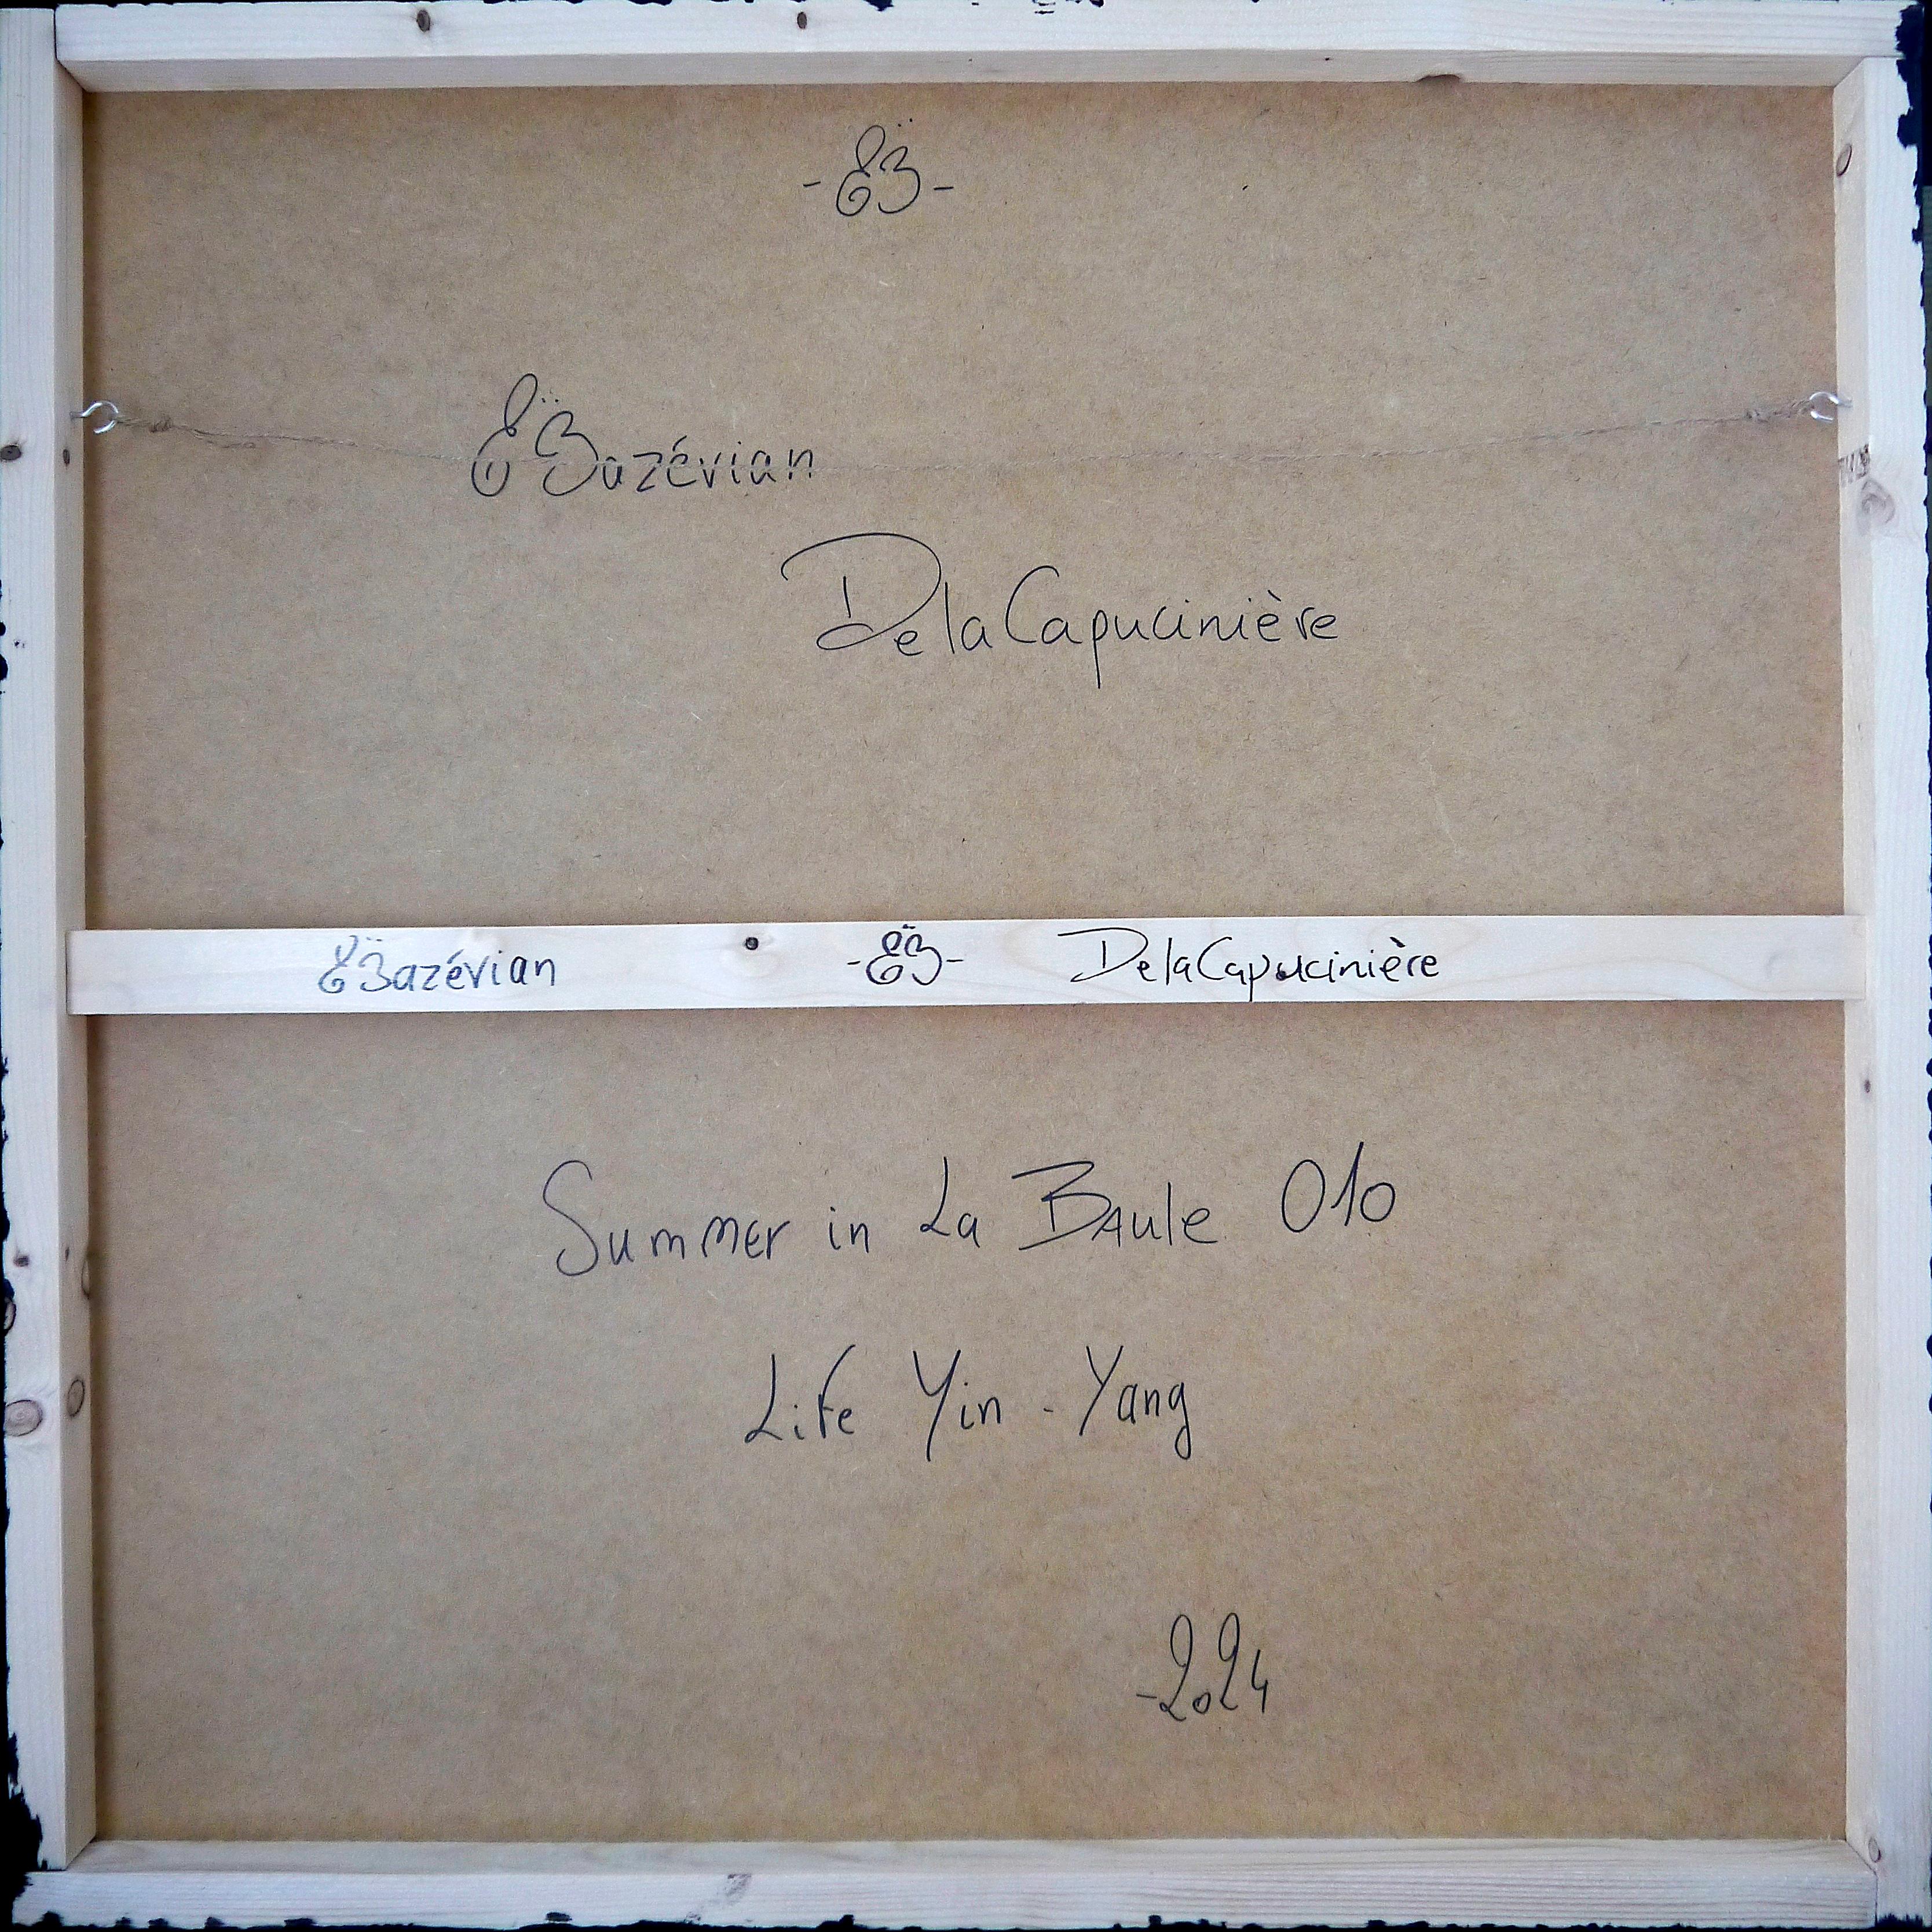 -ËB-
ËBazévian
DelaCapucinière
ËBazévian -ËB- DelaCapucinière
Summer in La BAule 010
Life Yin - Yang
-2024